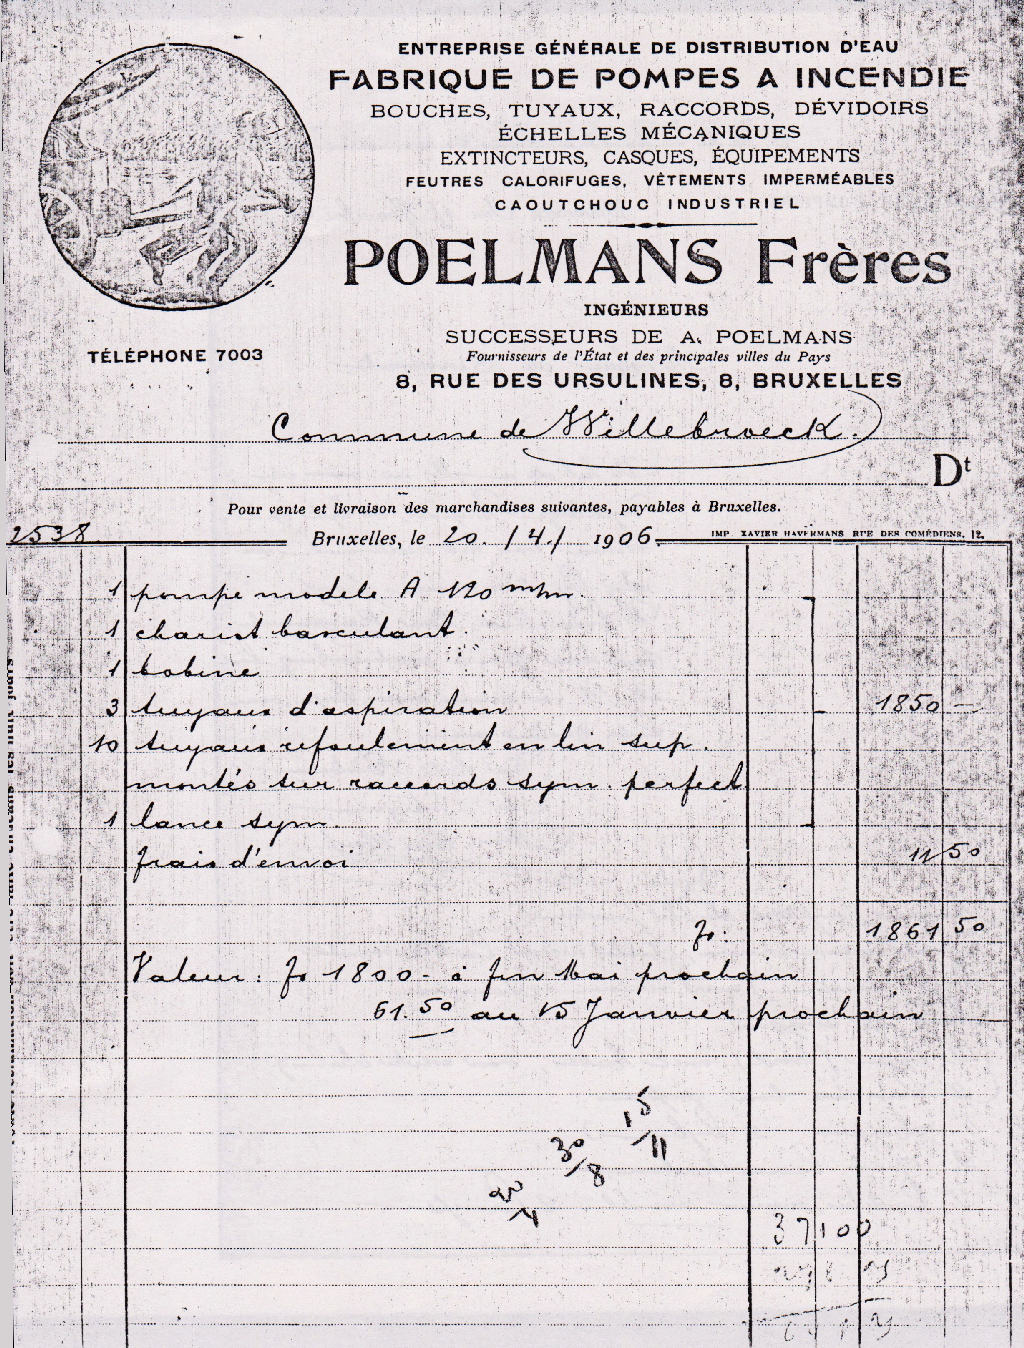 ENTREPRISE GÉNÉRALE DE DISTRIBUTION D'EAU
FABRIQUE DE POMPES A INCENDIE
BOUCHES, TUYAUX, RACCORDS, DÉVIDOIRS
ÉCHELLES MÉCANIQUES
EXTINCTEURS, CASQUES, ÉQUIPEMENTS
FEUTRES CALORIFUGES, VÊTEMENTS IMPERMÉABLES
CAOUTCHOUC INDUSTRIEL
POELMANS Frères
INGÉNIEURS
SUCCESSEURS DE A. POELMANS
Fournisseurs de l'État et des principales villes du Pays
TÉLÉPHONE 7003
8, RUE DES URSULINES, 8, BRUXELLES
Commune de Willebroeck.
Dt
Pour vente et livraison des marchandises suivantes, payables à Bruxelles.
2538 Bruxelles, le 20. /4./ 1906. IMP XAVIER HAVERMANS RUE DES COMÉDIENS, 12.
1 pompe modele A 120 m/m.
1 chariot basculant
1 bobine
3 tuyaux d'aspiration 1850 —
10 tuyaux refoulement en lin sup.
montés sur raccords sym. perfect
1 lance sym.
frais d'envoi 11 50
fr: 1861 50
Valeur: fr 1800 - à fin Mai prochain
61.50 au 15 Janvier prochain
15/11
30/8
37100